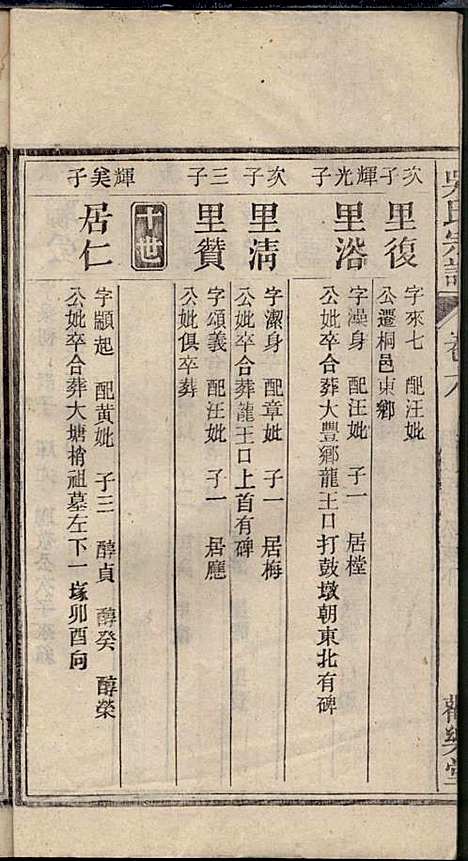 吳氏宗譜
卷八
次子
里復
字來七 配汪妣
公遷桐邑東鄉
輝光子
里浴
字澡身 配汪妣 子一 居樘
公妣卒合葬大豐鄉龍王口打鼓墩朝東北有碑
次子
里淸
字潔身 配章妣 子一 居梅
公妣卒合葬龍王口上首有碑
三子
里贊
字頌義 配汪妣 子一 居廳
公妣俱卒葬
十世
輝奚子
居仁
字顯起 配黃妣 子三 醇貞 醇癸 醇榮
公妣卒合葬大塘梢祖墓左下一塚卯酉向